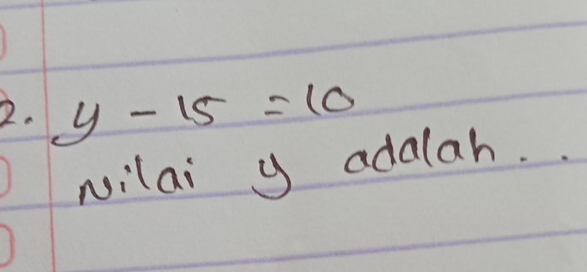 2. y - 15 = 10
Nilai y adalah...